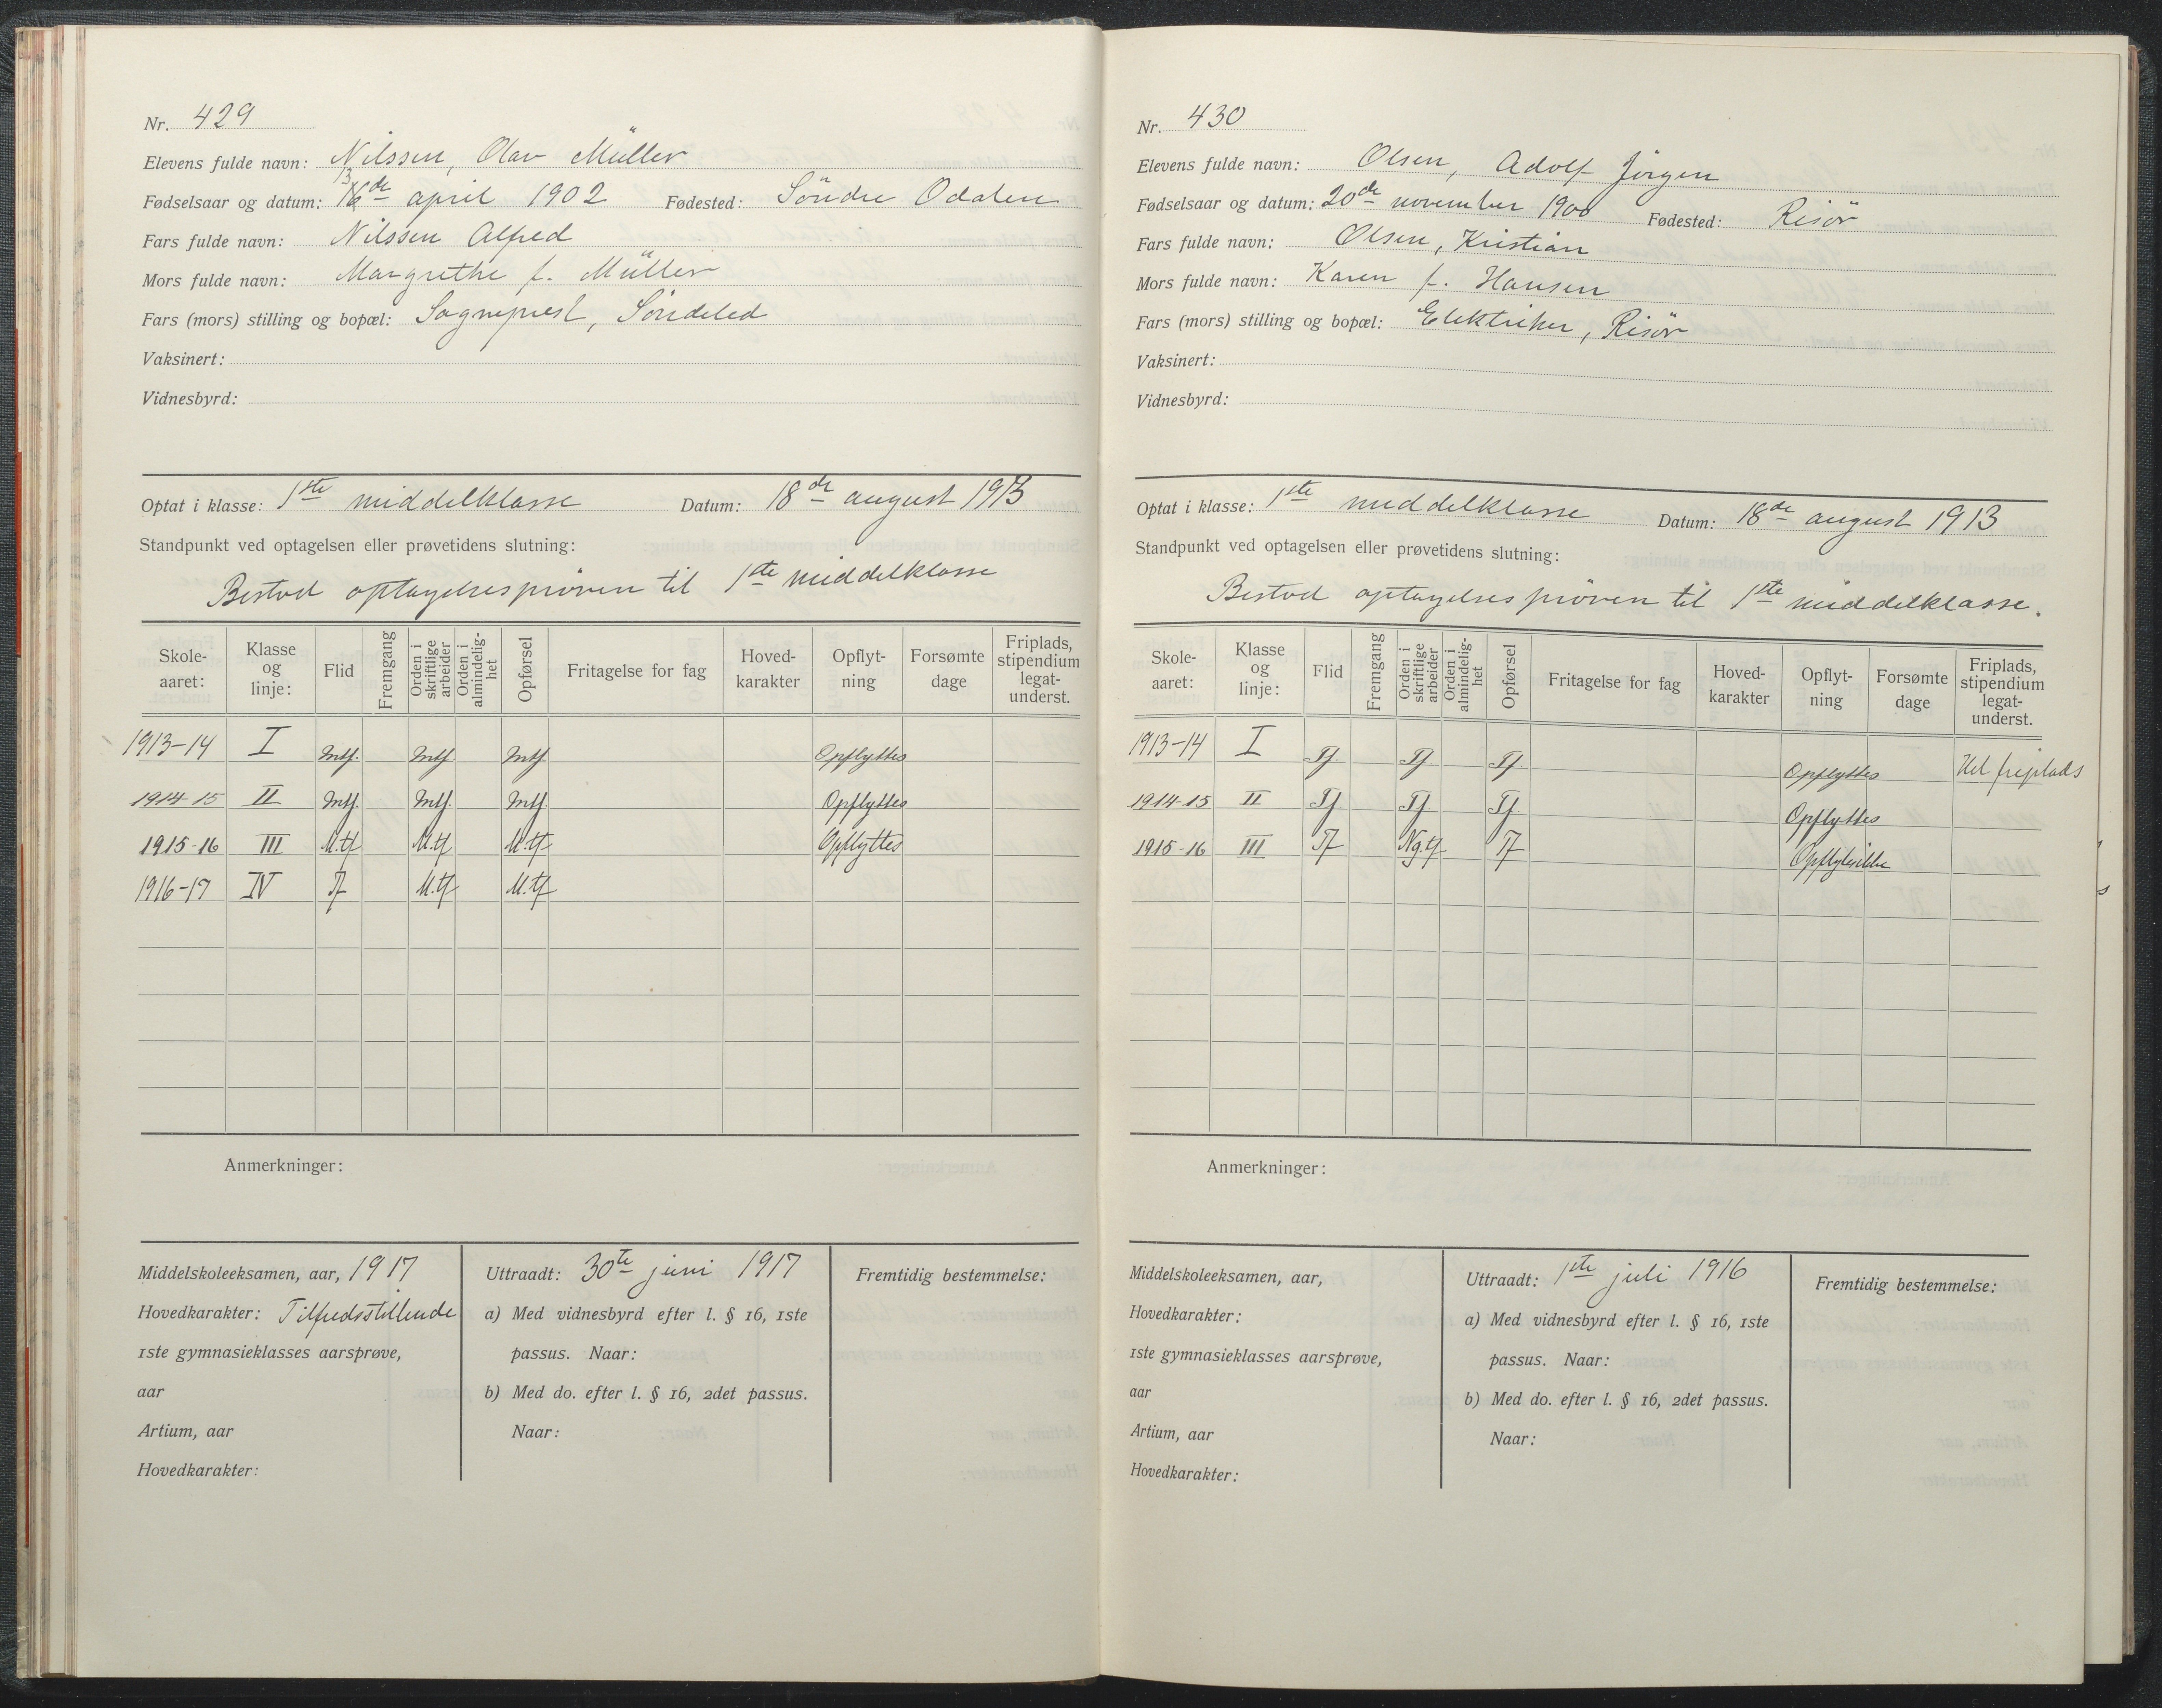 Nr. 429
Elevens fulde navn: Nilssen, Olav Müller
13
Fødselsaar og datum: 16de april 1902 Fødested: Söndre Odalen
Fars fulde navn: Nilssen Alfred
Mors fulde navn: Margrethe f. Müller
Fars (mors) stilling og bopæl: Sogneprest, Söndeled
Vaksinert:
Vidnesbyrd:
Optat i klasse: 1ste middelklasse Datum: 18de august 1913
Standpunkt ved optagelsen eller prøvetidens slutning:
Bestod optagelsespröven til 1ste middelklasse
Skole-aaret: Klasse og linje: Flid Fremgang Orden i skriftlige arbeider Orden i almindelig-het Opførsel Fritagelse for fag Hoved-karakter Opflyt-ning Forsømte dage Friplads, stipendium legat-underst.
1913-14 I Mtf. Mtf Mtf. Opflyttes
1914-15 II Mtf. Mtf. Mtf. Opflyttes
1915-16 III M.tf M.tf M.tf Opflyttes
1916-17 IV Tf M.tf M.tf
Anmerkninger:
Middelskoleeksamen, aar, 1917
Hovedkarakter: Tilfredsstillende
1ste gymnasieklasses aarsprøve,
aar
Artium, aar
Hovedkarakter:
Uttraadt: 30te juni 1917
a) Med vidnesbyrd efter l. § 16, 1ste
passus. Naar:
b) Med do. efter l. § 16, 2det passus.
Naar:
Fremtidig bestemmelse:
Nr. 430
Elevens fulde navn: Olsen, Adolf Jörgen
Fødselsaar og datum: 20de november 1900 Fødested: Risör
Fars fulde navn: Olsen, Kristian
Mors fulde navn: Karen f. Hansen
Fars (mors) stilling og bopæl: Elektriker, Risör
Vaksinert:
Vidnesbyrd:
Optat i klasse: 1ste middelklasse Datum: 18de august 1913
Standpunkt ved optagelsen eller prøvetidens slutning:
Bestod optagelsespröven til 1ste middelklasse.
Skole-aaret: Klasse og linje: Flid Fremgang Orden i skriftlige arbeider Orden i almindelig-het Opførsel Fritagelse for fag Hoved-karakter Opflyt-ning Forsømte dage Friplads, stipendium legat-underst.
1913-14 I Tf. Tf Tf. Opflyttes Hel friplads
1914-15 II Tf Tf. Tf. Opflyttes
1915-16 III Tf Ng.tf Tf
Anmerkninger:
Middelskoleeksamen, aar,
Hovedkarakter:
1ste gymnasieklasses aarsprøve,
aar
Artium, aar
Hovedkarakter:
Uttraadt: 1ste juli 1916
a) Med vidnesbyrd efter l. § 16, 1ste
passus. Naar:
b) Med do. efter l. § 16, 2det passus.
Naar:
Fremtidig bestemmelse: